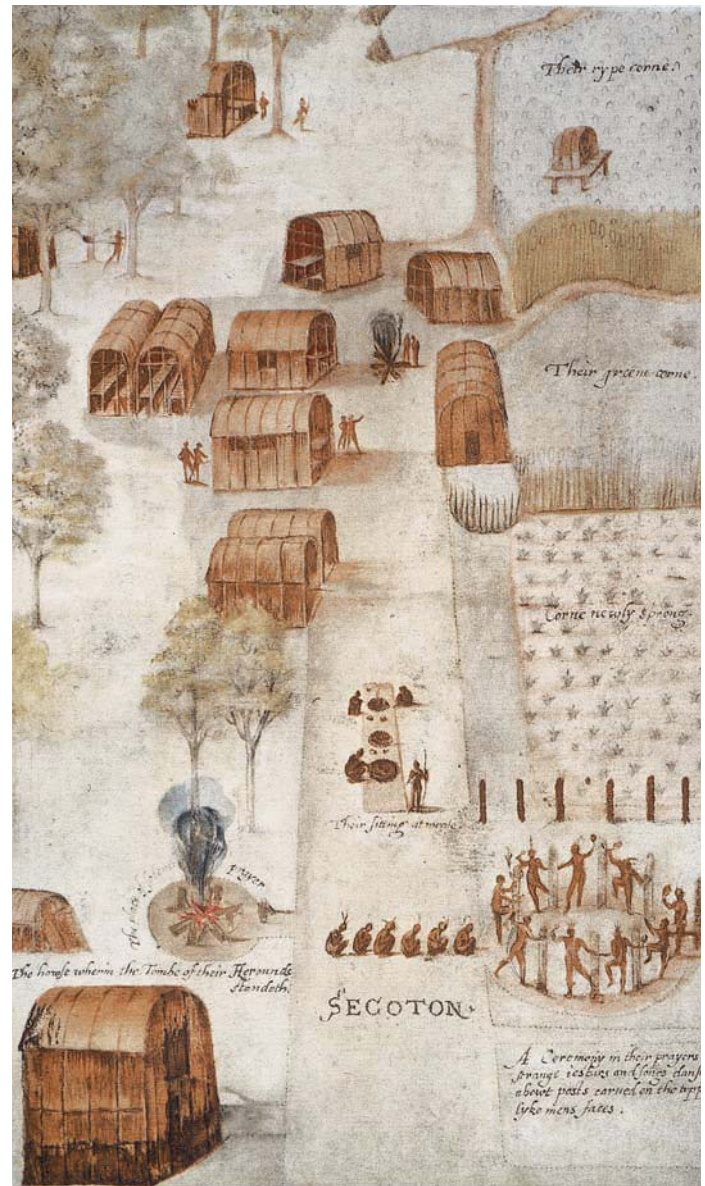 Their rype corne.
Their greene corne.
Corne newly sprong.
Their sitting at meate.
The place of prayer
The howse wherin the Tombe of their Herounds
standeth.
SECOTON.
A Ceremony in their prayers
strange iesturs and songs dans
abowt posts carued on the topp
lyke mens faces.